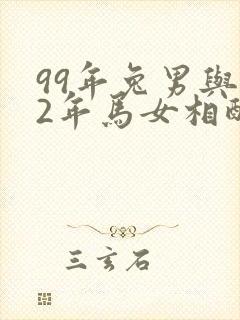 99年兔男與
2年馬女相配
三玄石